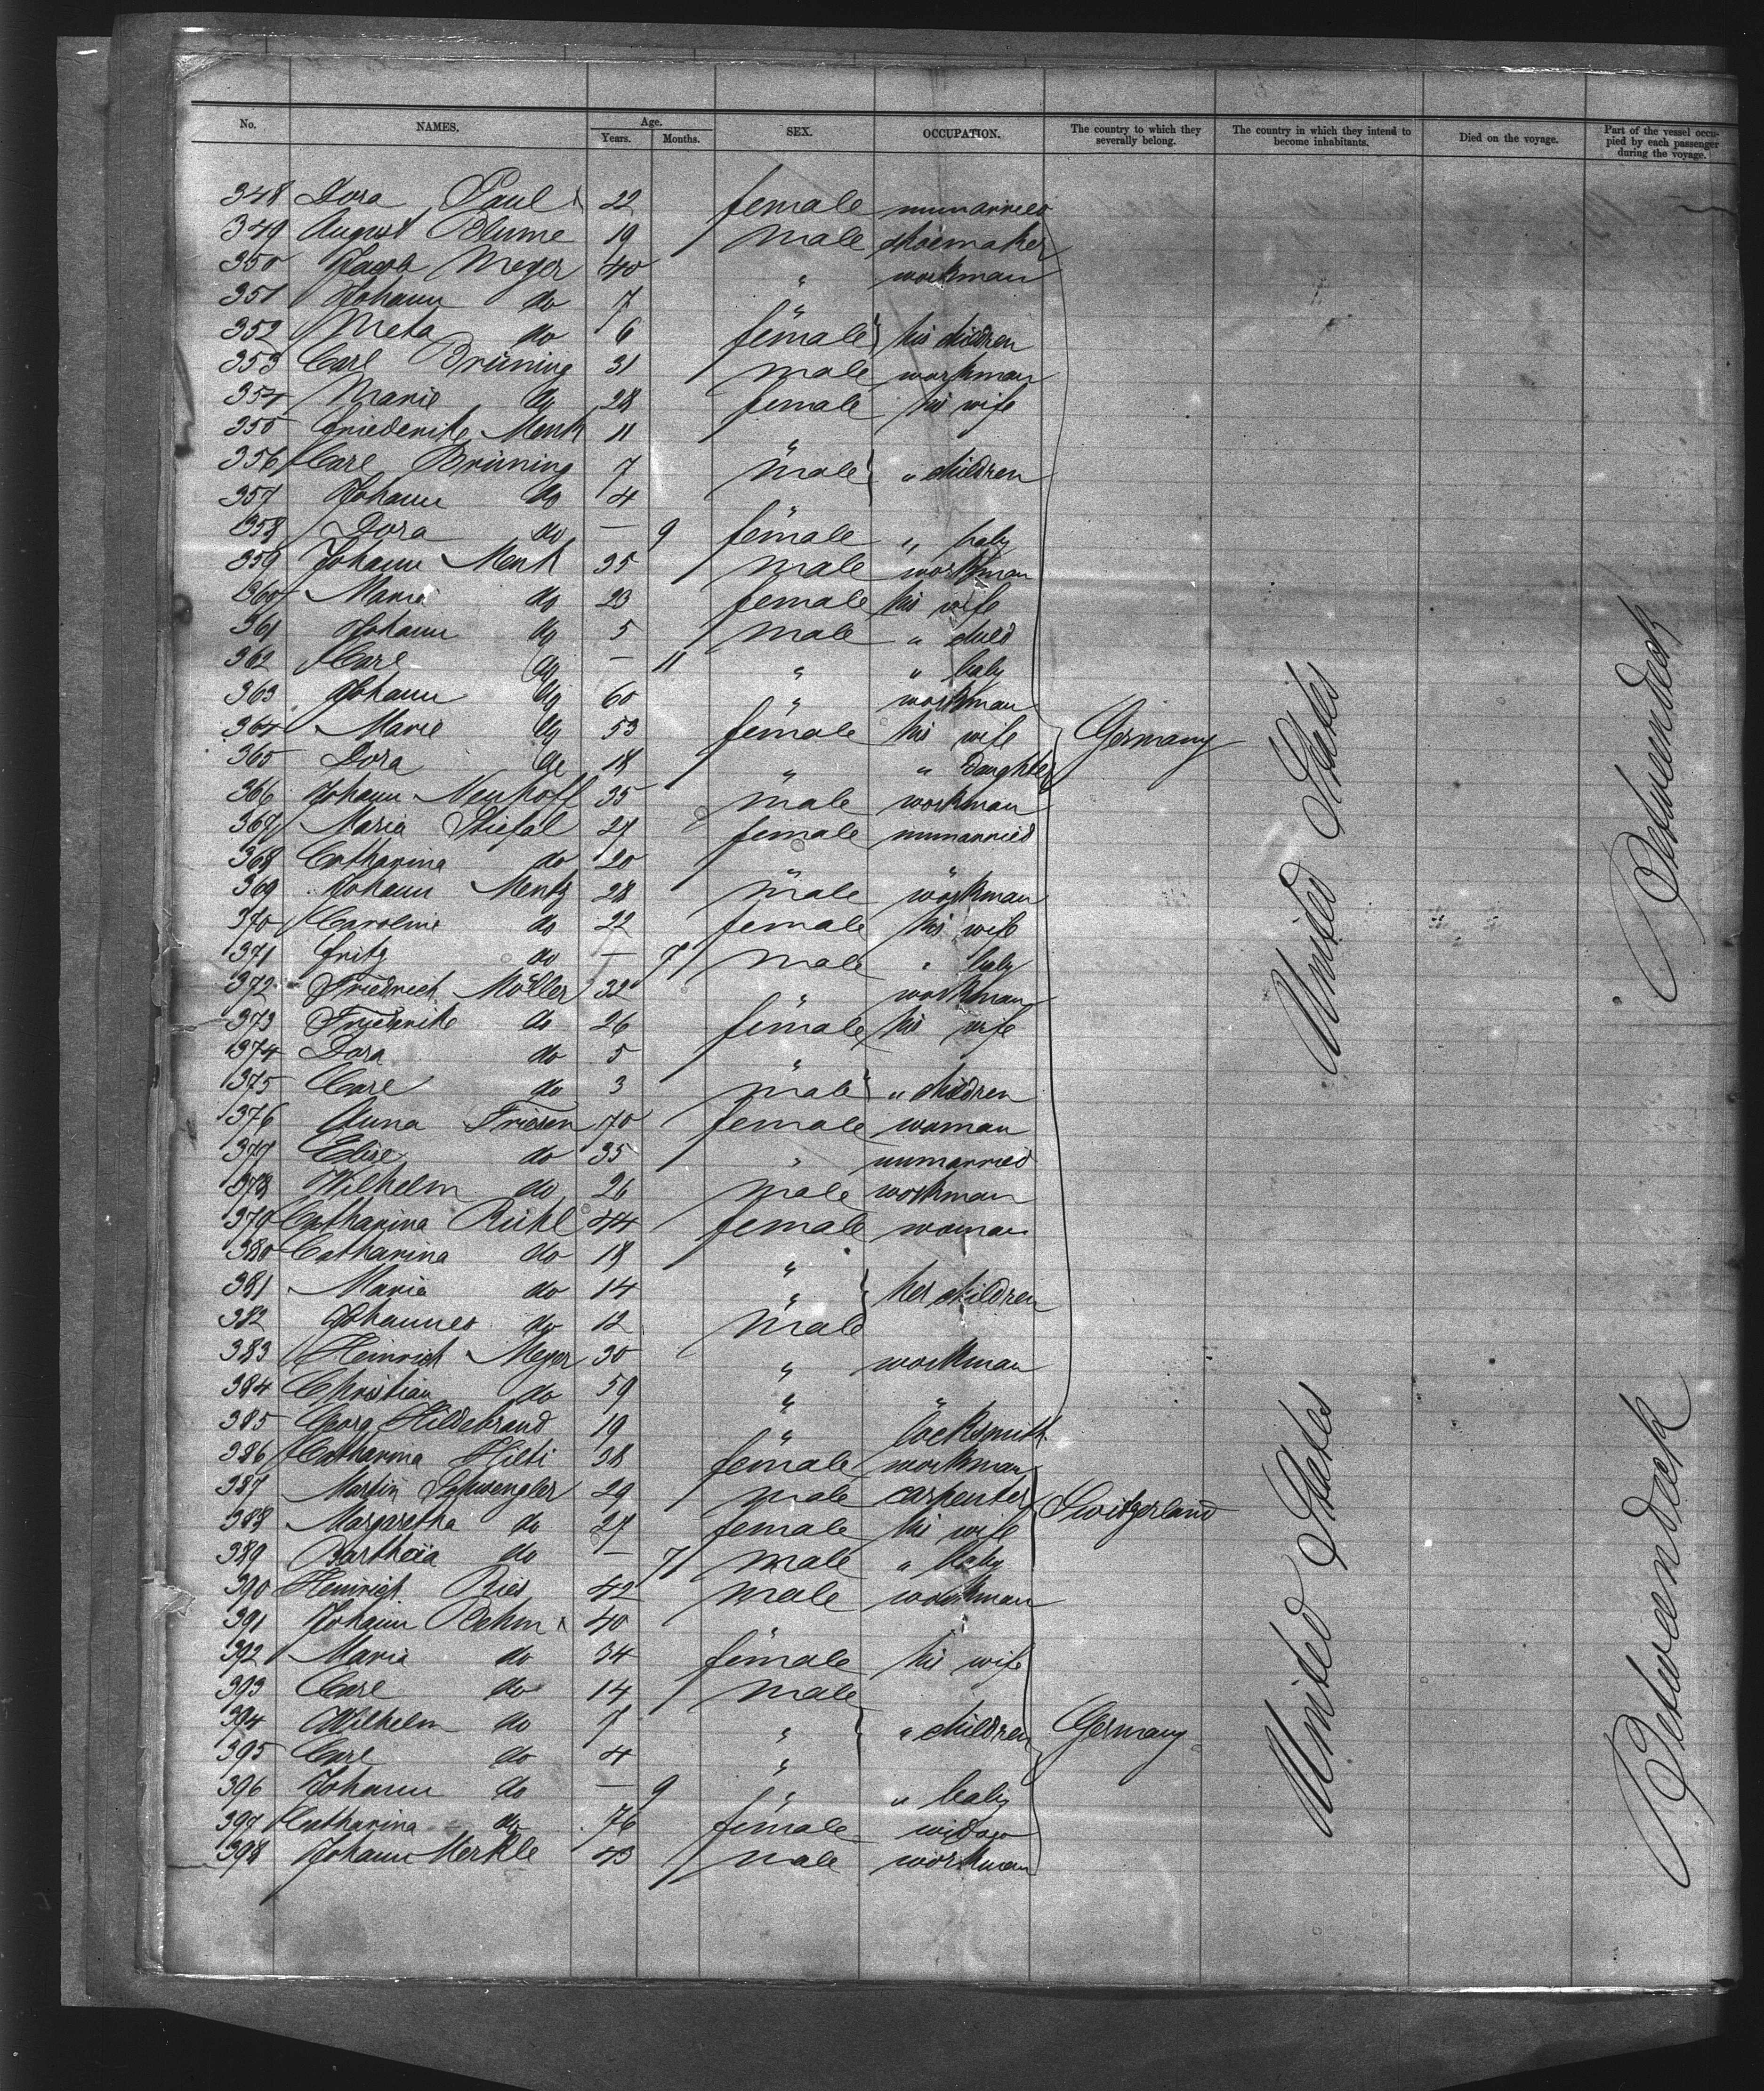 No. NAMES. Age. Years. Months. SEX. OCCUPATION. The country to which they severally belong. The country in which they intend to become inhabitants. Died on the voyage. Part of the vessel occupied by each passenger during the voyage.
348 Dora Paul 22 female unmarried
349 August Blume 19 male shoemaker
350 Jacob Meyer 40 " workman
351 Johann do 7 "
352 Meta do 6 female his children
353 Carl Brüning 31 male workman
354 Marie do 28 female his wife
355 Friederike Menk 11 "
356 Carl Brüning 7 male " children
357 Johann do 4 "
358 Dora do — 9 female " baby
359 Johann Menk 35 male workman
360 Maria do 23 female his wife
361 Johann do 5 male " child
362 Carl do — 11 " " baby
363 Johann do 60 " workman
364 Marie do 53 female his wife Germany
365 Dora do 18 " " daughter
366 Johann Neuhoff 35 male workman
367 Maria Stiefal 27 female unmarried
368 Catharina do 20 " "
369 Johann Mentz 28 male workman
370 Caroline do 22 female his wife
371 Fritz do — 7 male " baby
372 Friedrich Möller 32 " workman
373 Friederike do 26 female his wife
374 Dora do 5 "
375 Carl do 3 male " children
376 Anna Friesen 70 female woman
377 Elise do 35 " unmarried
378 Wilhelm do 26 male workman
379 Catharina Rühl 44 female woman
380 Catharina do 18 "
381 Maria do 14 " her children
382 Johannes do 12 male
383 Heinrich Meyer 30 " workman
384 Christian do 59 " "
385 Georg Hildebrand 19 " locksmith
386 Catharina Hilti 38 female workman
387 Martin Schwengler 29 male carpenter Switzerland
388 Margaretha do 27 female his wife
389 do — 7 male " baby
390 Heinrich Ries 42 male workman
391 Johann Behm 40 "
392 Maria do 34 female his wife
393 Carl do 14 male
394 Wilhelm do 7 " " children Germany
395 Carl do 4 "
396 Johann do — 9 " " baby
397 Catharina do 76 female widow
398 Johann Merkle 43 male workman
United States
Betweendeck
United States
Betweendeck